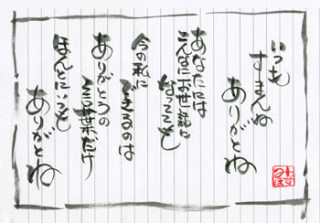 いつも
すまんね
ありがとね
あなたには
こんなにお世話に
なってても
今の私に
言えるのは
ありがとうの
言葉だけ
ほんとにいつも
ありがとね